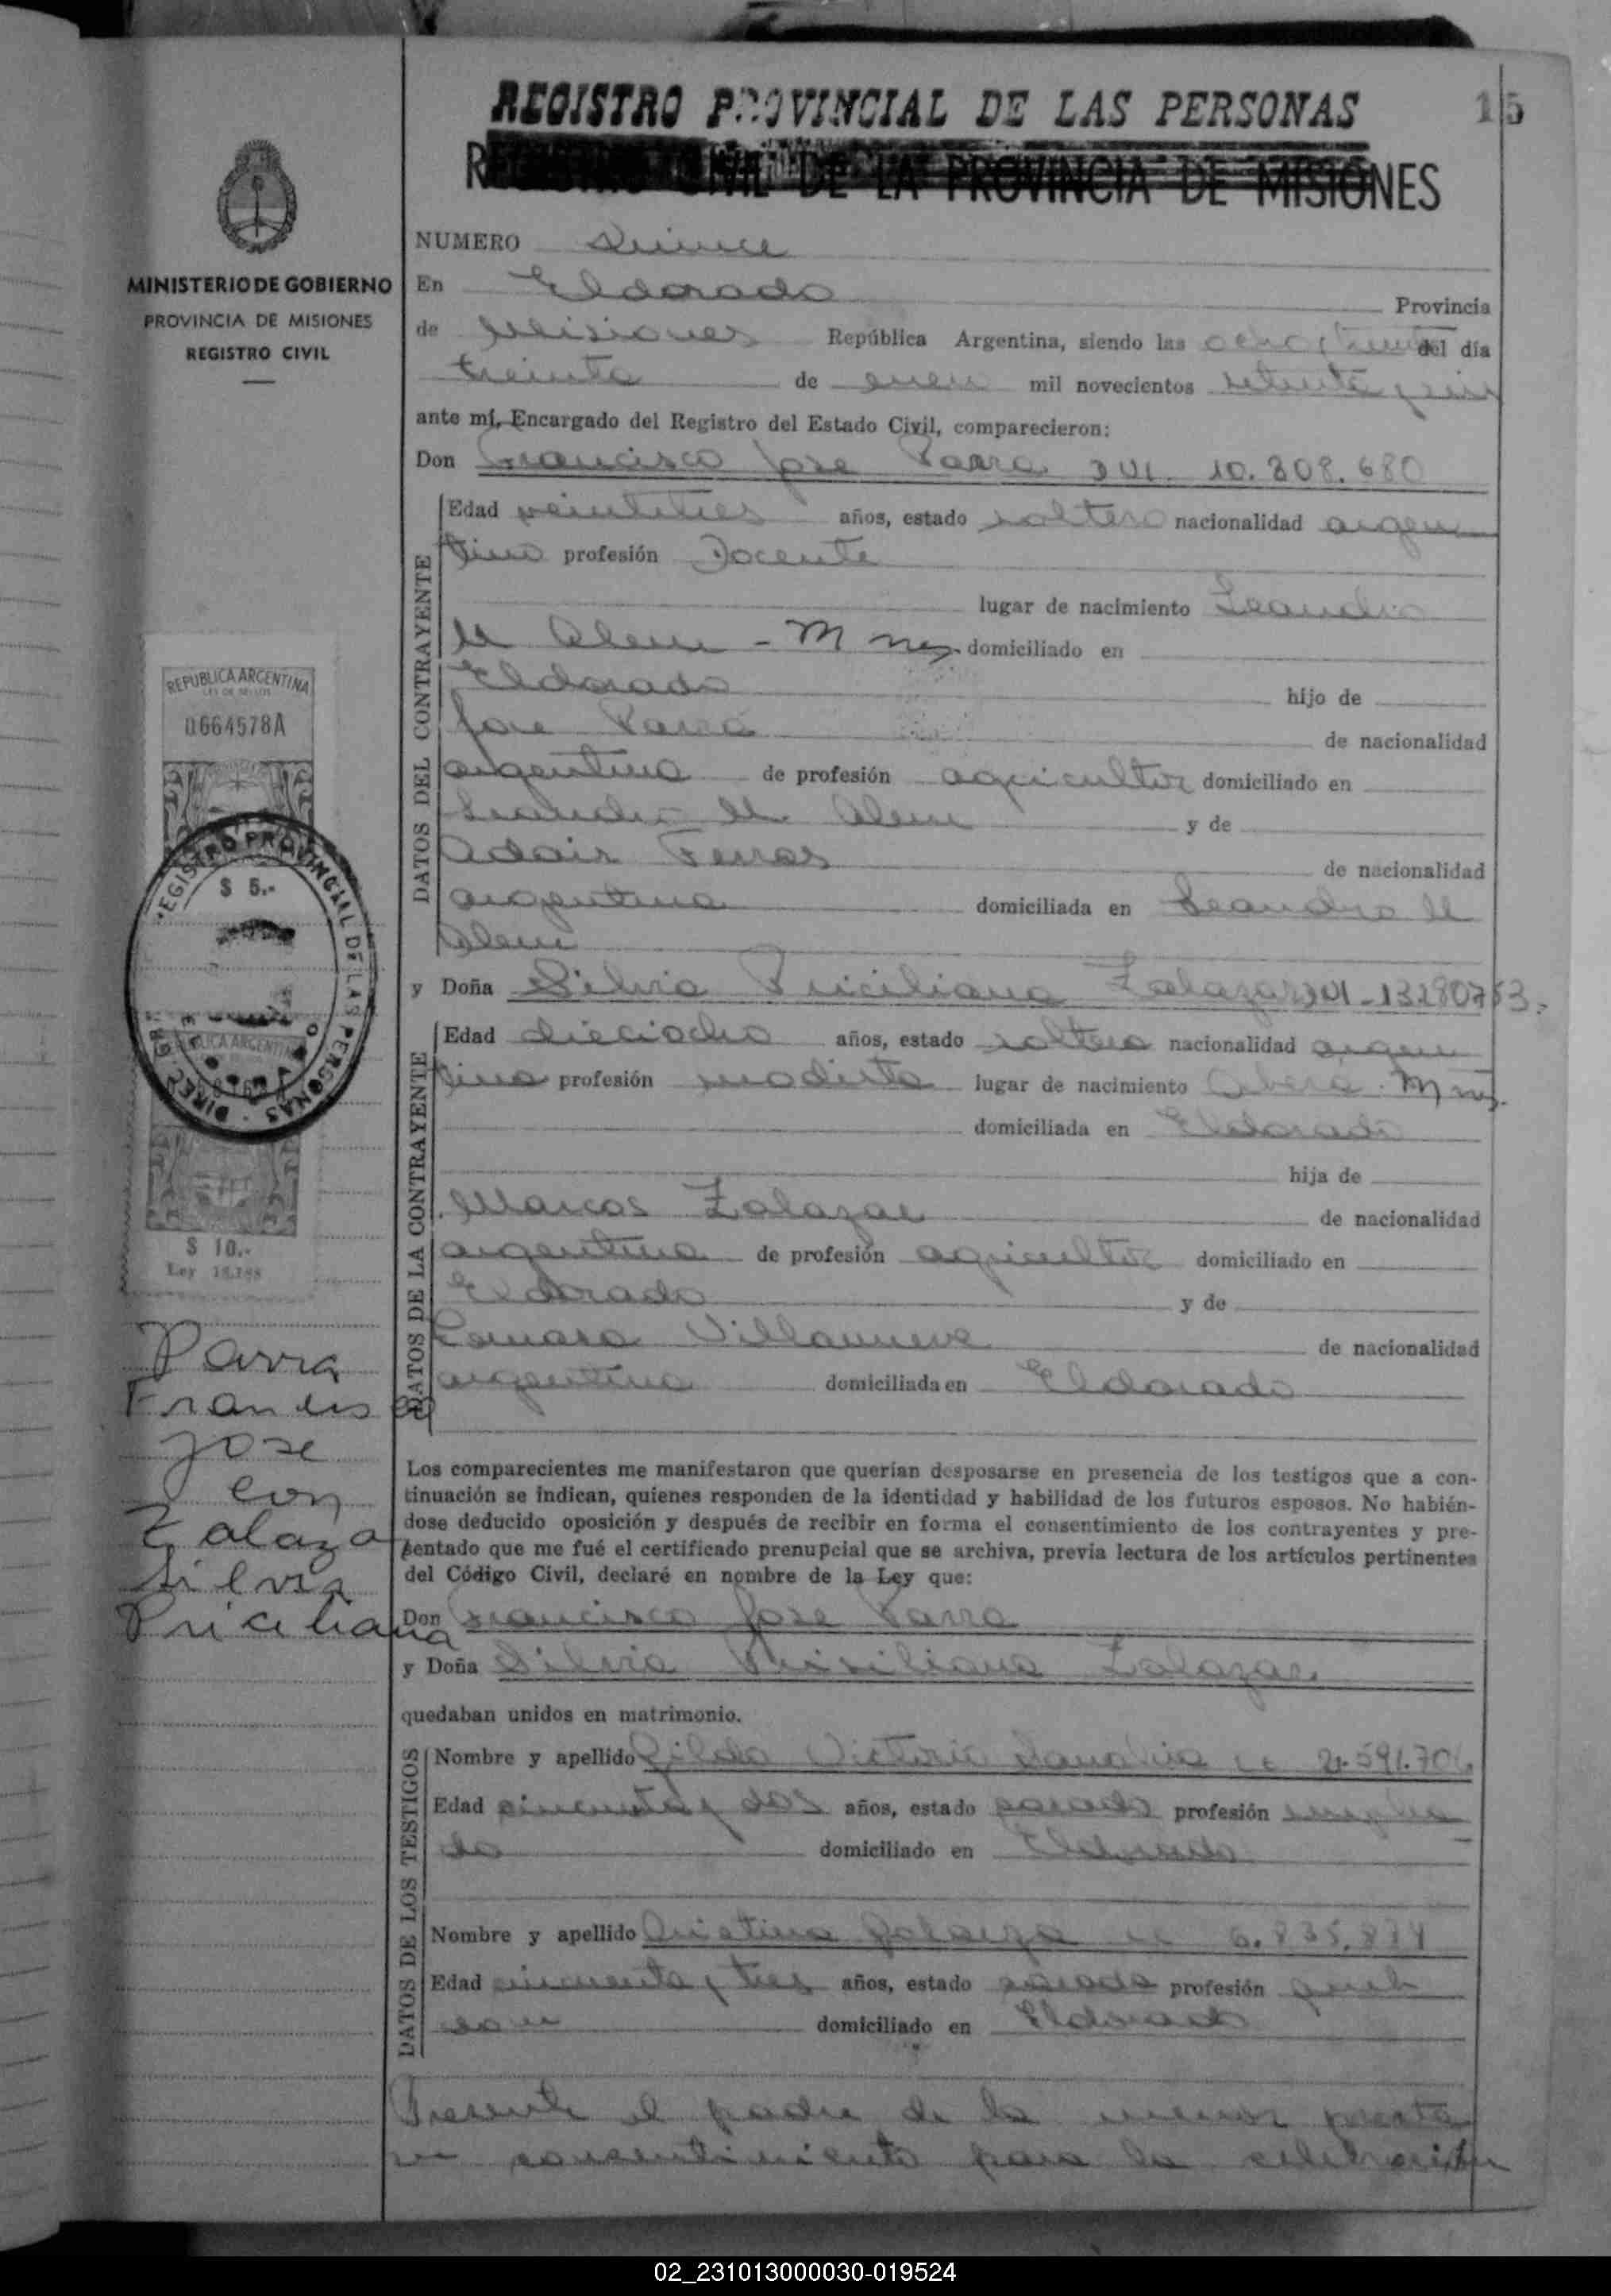 15
REGISTRO PROVINCIAL DE LAS PERSONAS
REGISTRO CIVIL DE LA PROVINCIA DE MISIONES
MINISTERIO DE GOBIERNO
PROVINCIA DE MISIONES
REGISTRO CIVIL
NUMERO Quince
En Eldorado Provincia
de Misiones República Argentina, siendo las ocho y treinta del día
treinta de enero mil novecientos setenta y
ante mí, Encargado del Registro del Estado Civil, comparecieron:
Don Francisco Jose Parra DUI. 10.808.680
DATOS DEL CONTRAYENTE
Edad veintitres años, estado soltero nacionalidad argen
tino profesión Docente
lugar de nacimiento Leandro
N Alem - M nes. domiciliado en
Eldorado hijo de
Jose Parra de nacionalidad
argentina de profesión agricultor domiciliado en
Leandro N. Alem y de
Adair Ferras de nacionalidad
argentina domiciliada en Leandro N
Alem
y Doña Silvia Priciliana Zalazar DUI - 13280753.-
DATOS DE LA CONTRAYENTE
Edad dieciocho años, estado soltera nacionalidad argen
tina profesión modista lugar de nacimiento Oberá - M nes.
domiciliada en Eldorado
hija de
Marcos Zalazar de nacionalidad
argentina de profesión agricultor domiciliado en
Eldorado y de
Ramona Villanueva de nacionalidad
argentina domiciliada en Eldorado
REPUBLICA ARGENTINA
LEY DE SELLOS
0664578A
$ 5.-
REGISTRO PROVINCIAL DE LAS PERSONAS
REPUBLICA ARGENTINA
$ 10.-
Ley
Parra
Francisco
Jose
con
Zalaza
Silvia
Priciliana
Los comparecientes me manifestaron que querían desposarse en presencia de los testigos que a con-
tinuación se indican, quienes responden de la identidad y habilidad de los futuros esposos. No habién-
dose deducido oposición y después de recibir en forma el consentimiento de los contrayentes y pre-
sentado que me fué el certificado prenupcial que se archiva, previa lectura de los artículos pertinentes
del Código Civil, declaré en nombre de la Ley que:
Don Francisco Jose Parra
y Doña Silvia Prisiliana Zalazar
quedaban unidos en matrimonio.
DATOS DE LOS TESTIGOS
Nombre y apellido Gilda Victoria
Edad cincuenta y dos años, estado casada profesión emplea
da domiciliado en Eldorado
Nombre y apellido Cristina Galarza
Edad cincuenta y tres años, estado casada profesión queh
domiciliado en Eldorado
Presente el padre de la menor presta
su consentimiento para la celebración
02_231013000030-019524